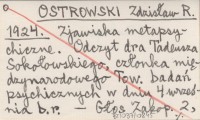 OSTROWSKI Zdzisław R.
1924. Zjawiska metapsy-
chiczne. Odczyt dra Tadeusza
Sokołowskiego, członka mię-
dzynarodowego Tow. badań
psychicznych w dniu 4 wrześ-
nia b.r. Głos Zakop. 2.